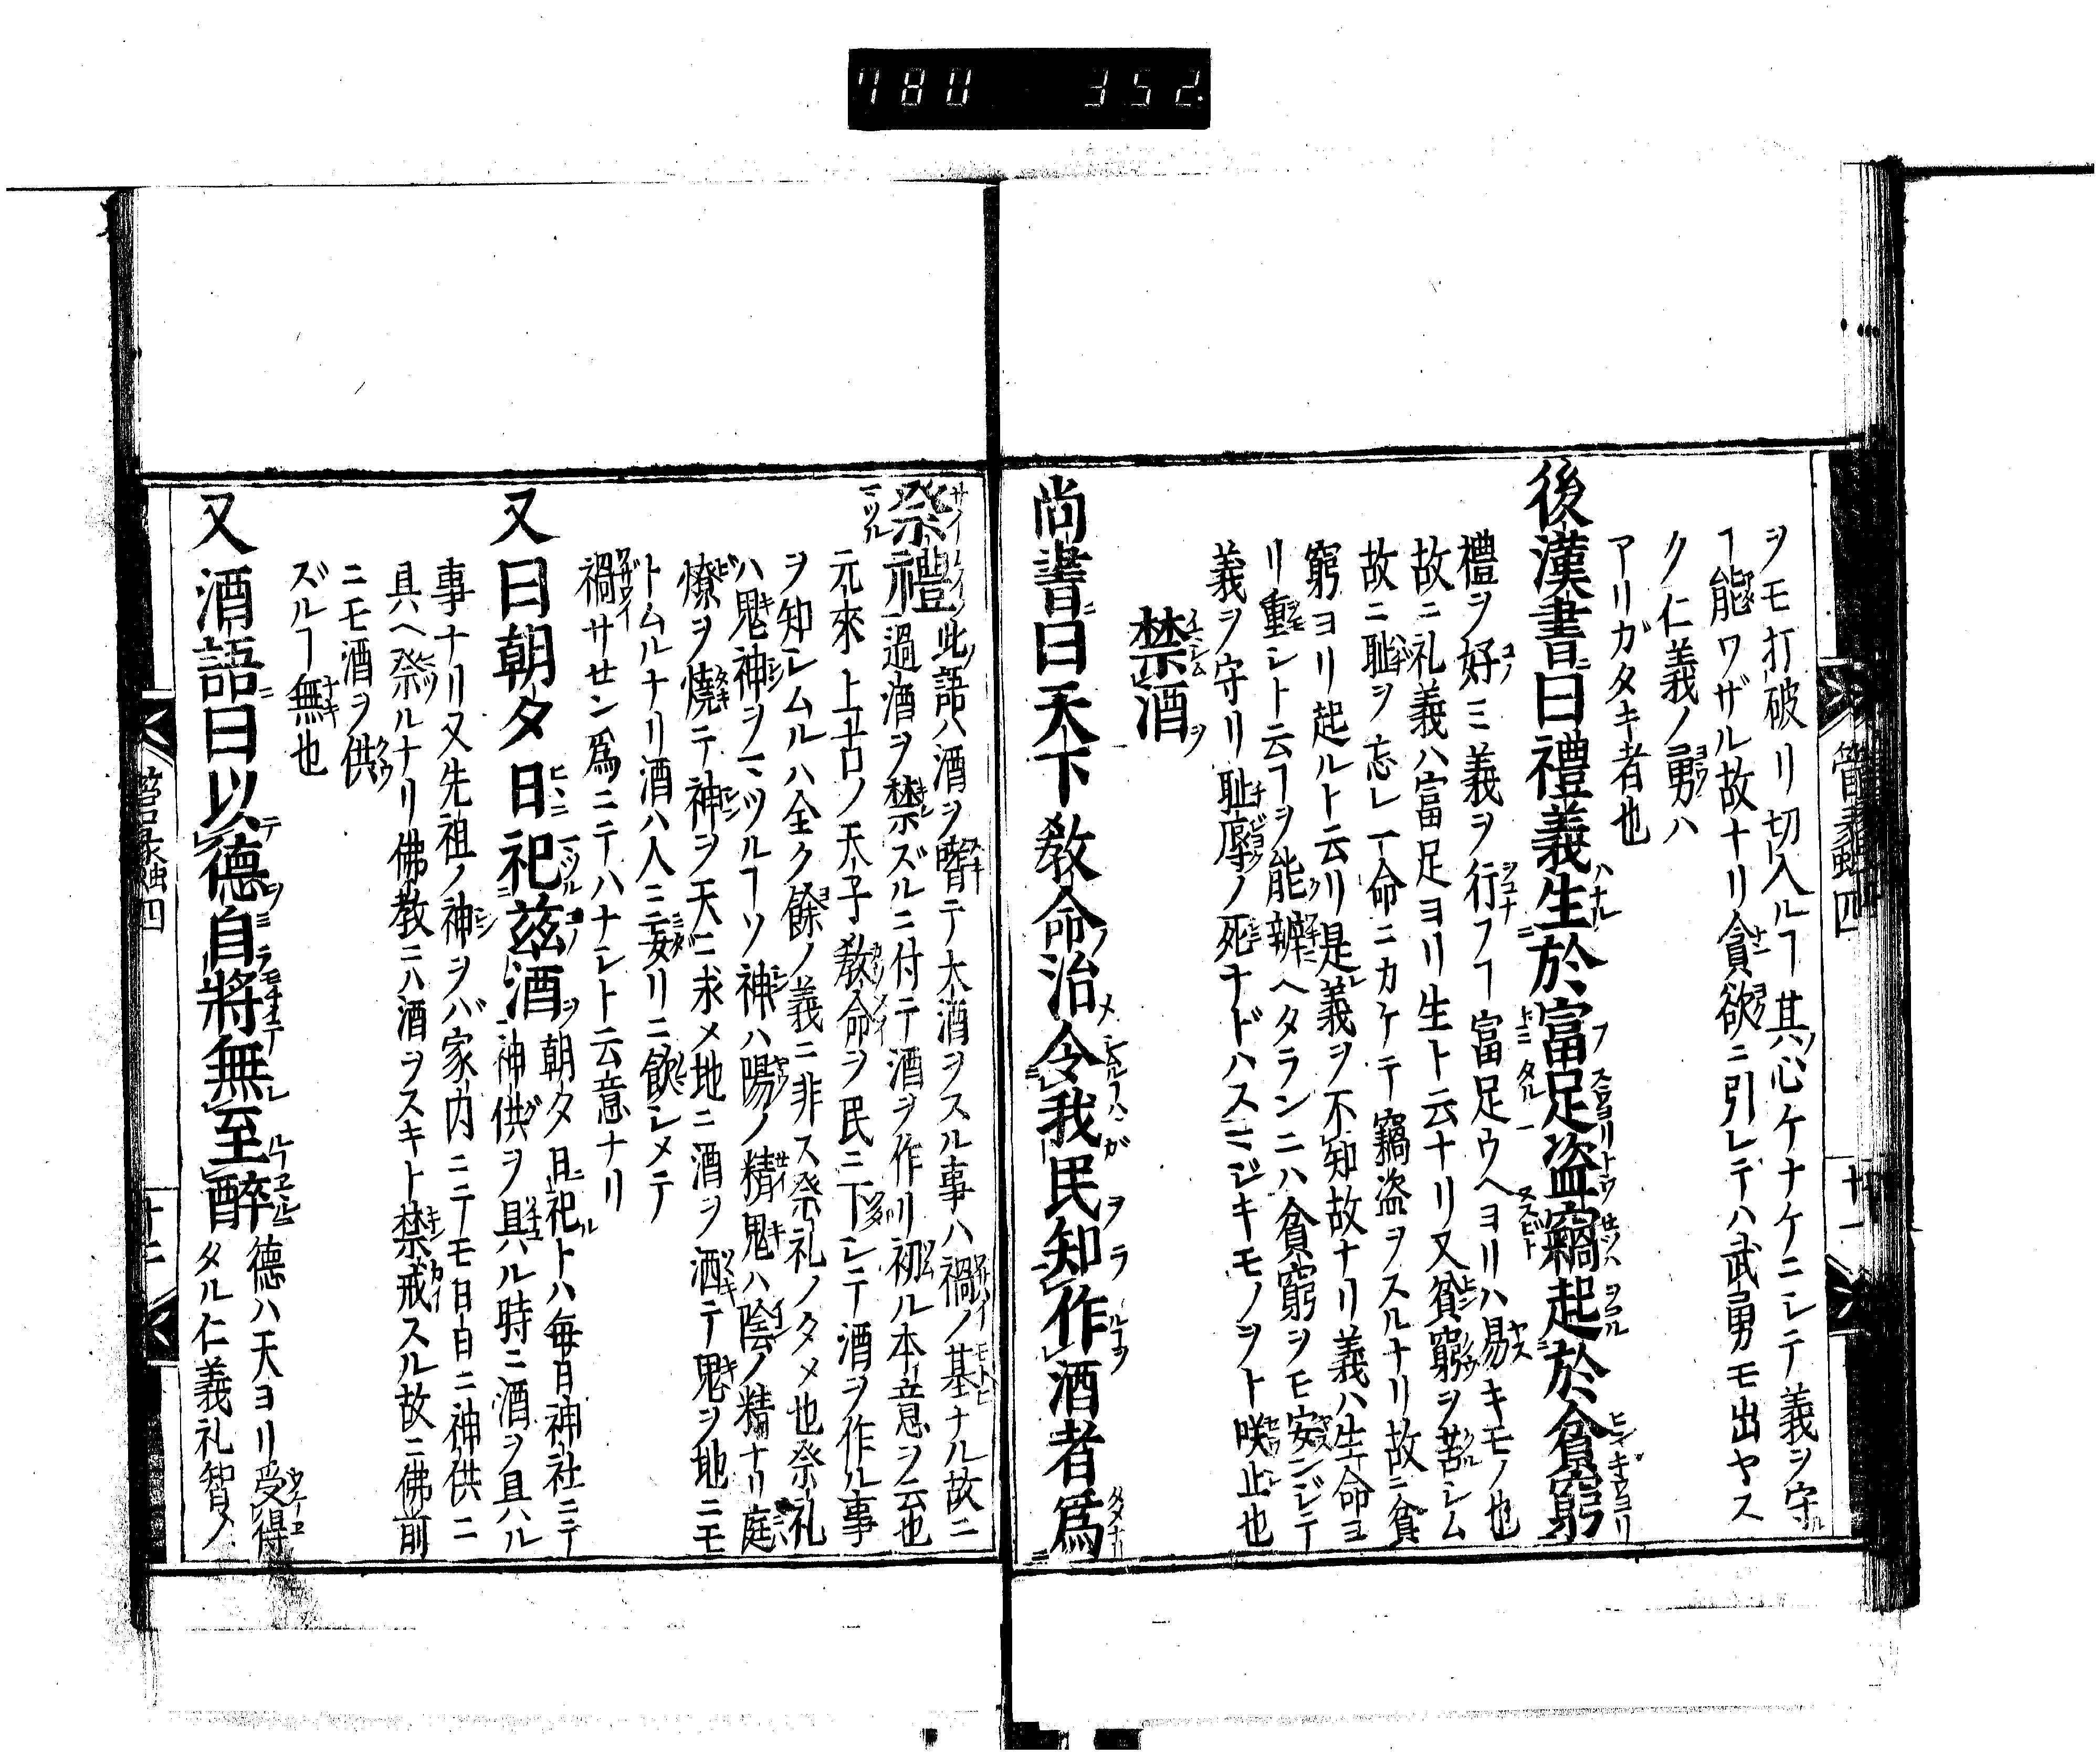 780 352
ヲモ打破リ切入ルヿ其心ケナケニシテ義ヲ守ル
ヿ能ワザル故ナリ貪欲ニ引レテハ武勇モ出ヤス
ク仁義ノ勇ハ
アリガタキ者也
後漢書曰禮義生於富足盗竊起於貧窮
禮ヲ好ミ義ヲ行フヿ富足ウヘヨリハ易キモノ也
故ニ礼義ハ富足ヨリ生ト云ナリ又貧窮ヲ苦シム
故ニ耻ヲ忘レ一命ニカケテ竊盗ヲスルナリ故ニ貧
窮ヨリ起ルト云リ是義ヲ不知故ナリ義ハ生命ヨ
リ重シト云ヿヲ能辨ヘタランニハ貧窮ヲモ安ンジテ
義ヲ守リ耻辱ノ死ナドハスマジキモノヲト咲止也
禁酒
尚書曰天下教命治令我民知作酒者爲
祭禮 此語ハ酒ヲ嗜テ大酒ヲスル事ハ禍ノ基ナル故ニ
過酒ヲ禁ズルニ付テ酒ヲ作リ初ル本意ヲ云也
元來上古ノ天子教命ヲ民ニ下シテ酒ヲ作ル事
ヲ知シムルハ全ク餘ノ義ニ非ス祭礼ノタメ也祭礼
ハ鬼神ヲマツルヿソ神ハ陽ノ精鬼ハ陰ノ精ナリ庭
燎ヲ燒テ神ヲ天ニ求メ地ニ酒ヲ洒テ鬼ヲ地ニモ
トムルナリ酒ハ人ニ妄リニ飲シメテ
禍サセン爲ニテハナシト云意ナリ
又曰朝夕日祀茲酒 朝夕日祀トハ毎日神社ニテ
神供ヲ具ハル時ニ酒ヲ具ハル
事ナリ又先祖ノ神ヲバ家内ニテモ日日ニ神供ニ
具ヘ祭ルナリ佛教ニハ酒ヲスキト禁戒スル故ニ佛前
ニモ酒ヲ供
ズルヿ無也
又酒語曰以德自將無至醉 德ハ天ヨリ受得
タル仁義礼智ノ
四
十一
十二